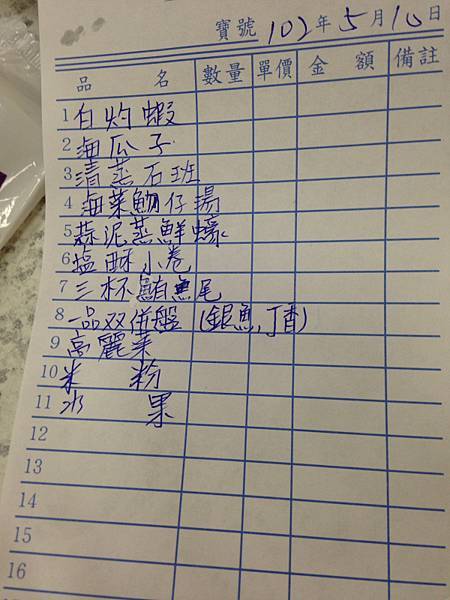 寶號 102年5月10日
品 名 數量 單價 金 額 備註
1 白灼蝦
2 海瓜子
3 清蒸石班
4 海菜魩仔湯
5 蒜泥蒸鮮蠔
6 塩酥小卷
7 三杯鮪魚尾
8 一品双併盤 (銀魚,丁香)
9 高麗菜
10 米 粉
11 水 果
12
13
14
15
16